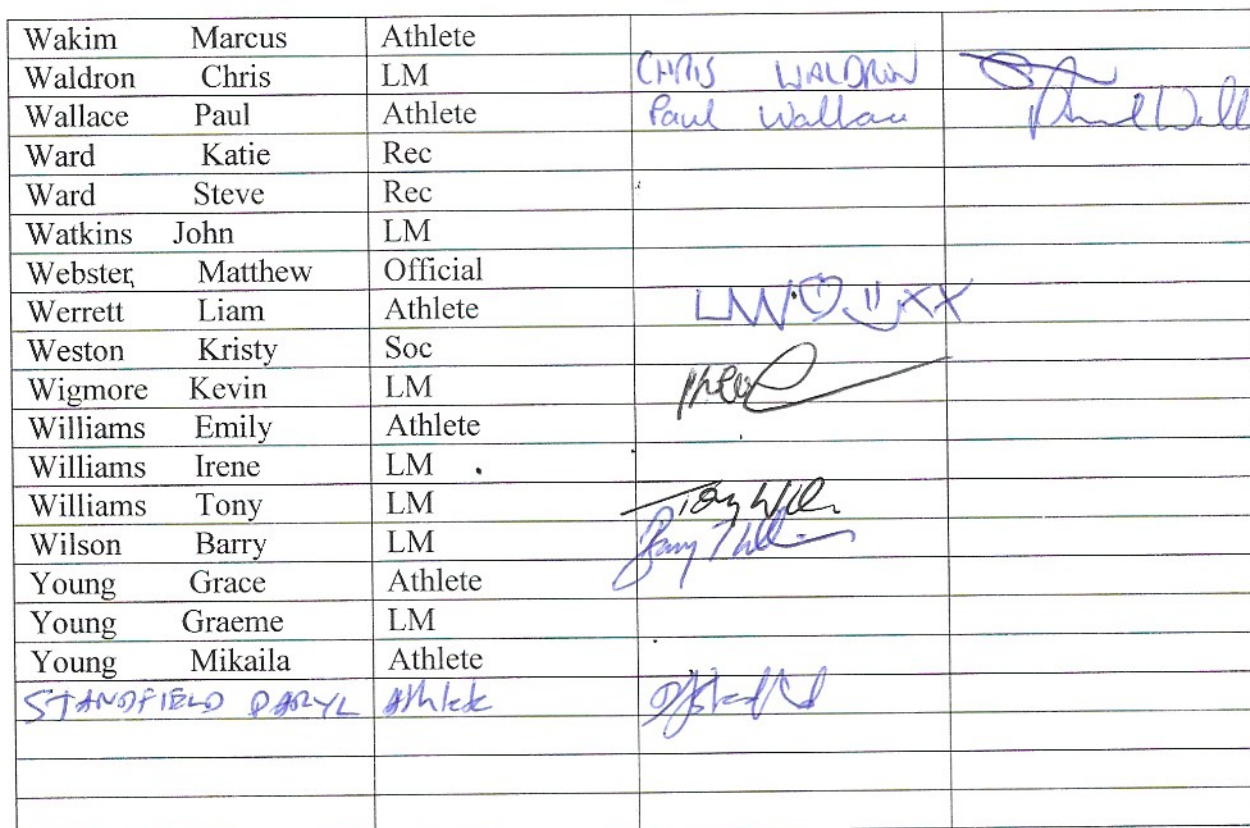 Wakim Marcus Athlete
Waldron Chris LM CHRIS WALDRON
Wallace Paul Athlete Paul Wallace
Ward Katie Rec
Ward Steve Rec
Watkins John LM
Webster, Matthew Official
Werrett Liam Athlete LW xx
Weston Kristy Soc
Wigmore Kevin LM
Williams Emily Athlete
Williams Irene LM
Williams Tony LM Tony
Wilson Barry LM
Young Grace Athlete
Young Graeme LM
Young Mikaila Athlete
STANDFIELD DARYL Athlete